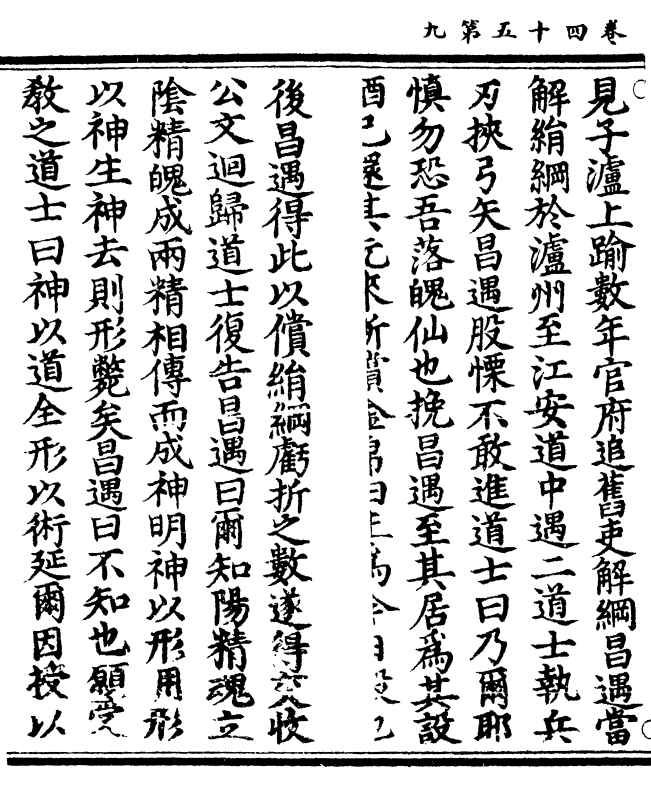 卷四十五第九
見子瀘上踰數年官府追舊吏解綱昌遇當
解絹綱於瀘州至江安道中遇二道士執兵
刃挾弓矢昌遇股慄不敢進道士曰乃爾耶
慎勿恐吾落魄仙也挽昌遇至其居爲其設
酒已還其元來所賞金帛曰正爲今日設也
後昌遇得此以償絹綱虧折之數遂得交收
公文迴歸道士復告昌遇曰爾知陽精魂立
陰精魄成兩精相傳而成神明神以形用形
以神生神去則形斃矣昌遇曰不知也願受
教之道士曰神以道全形以術延爾因授以